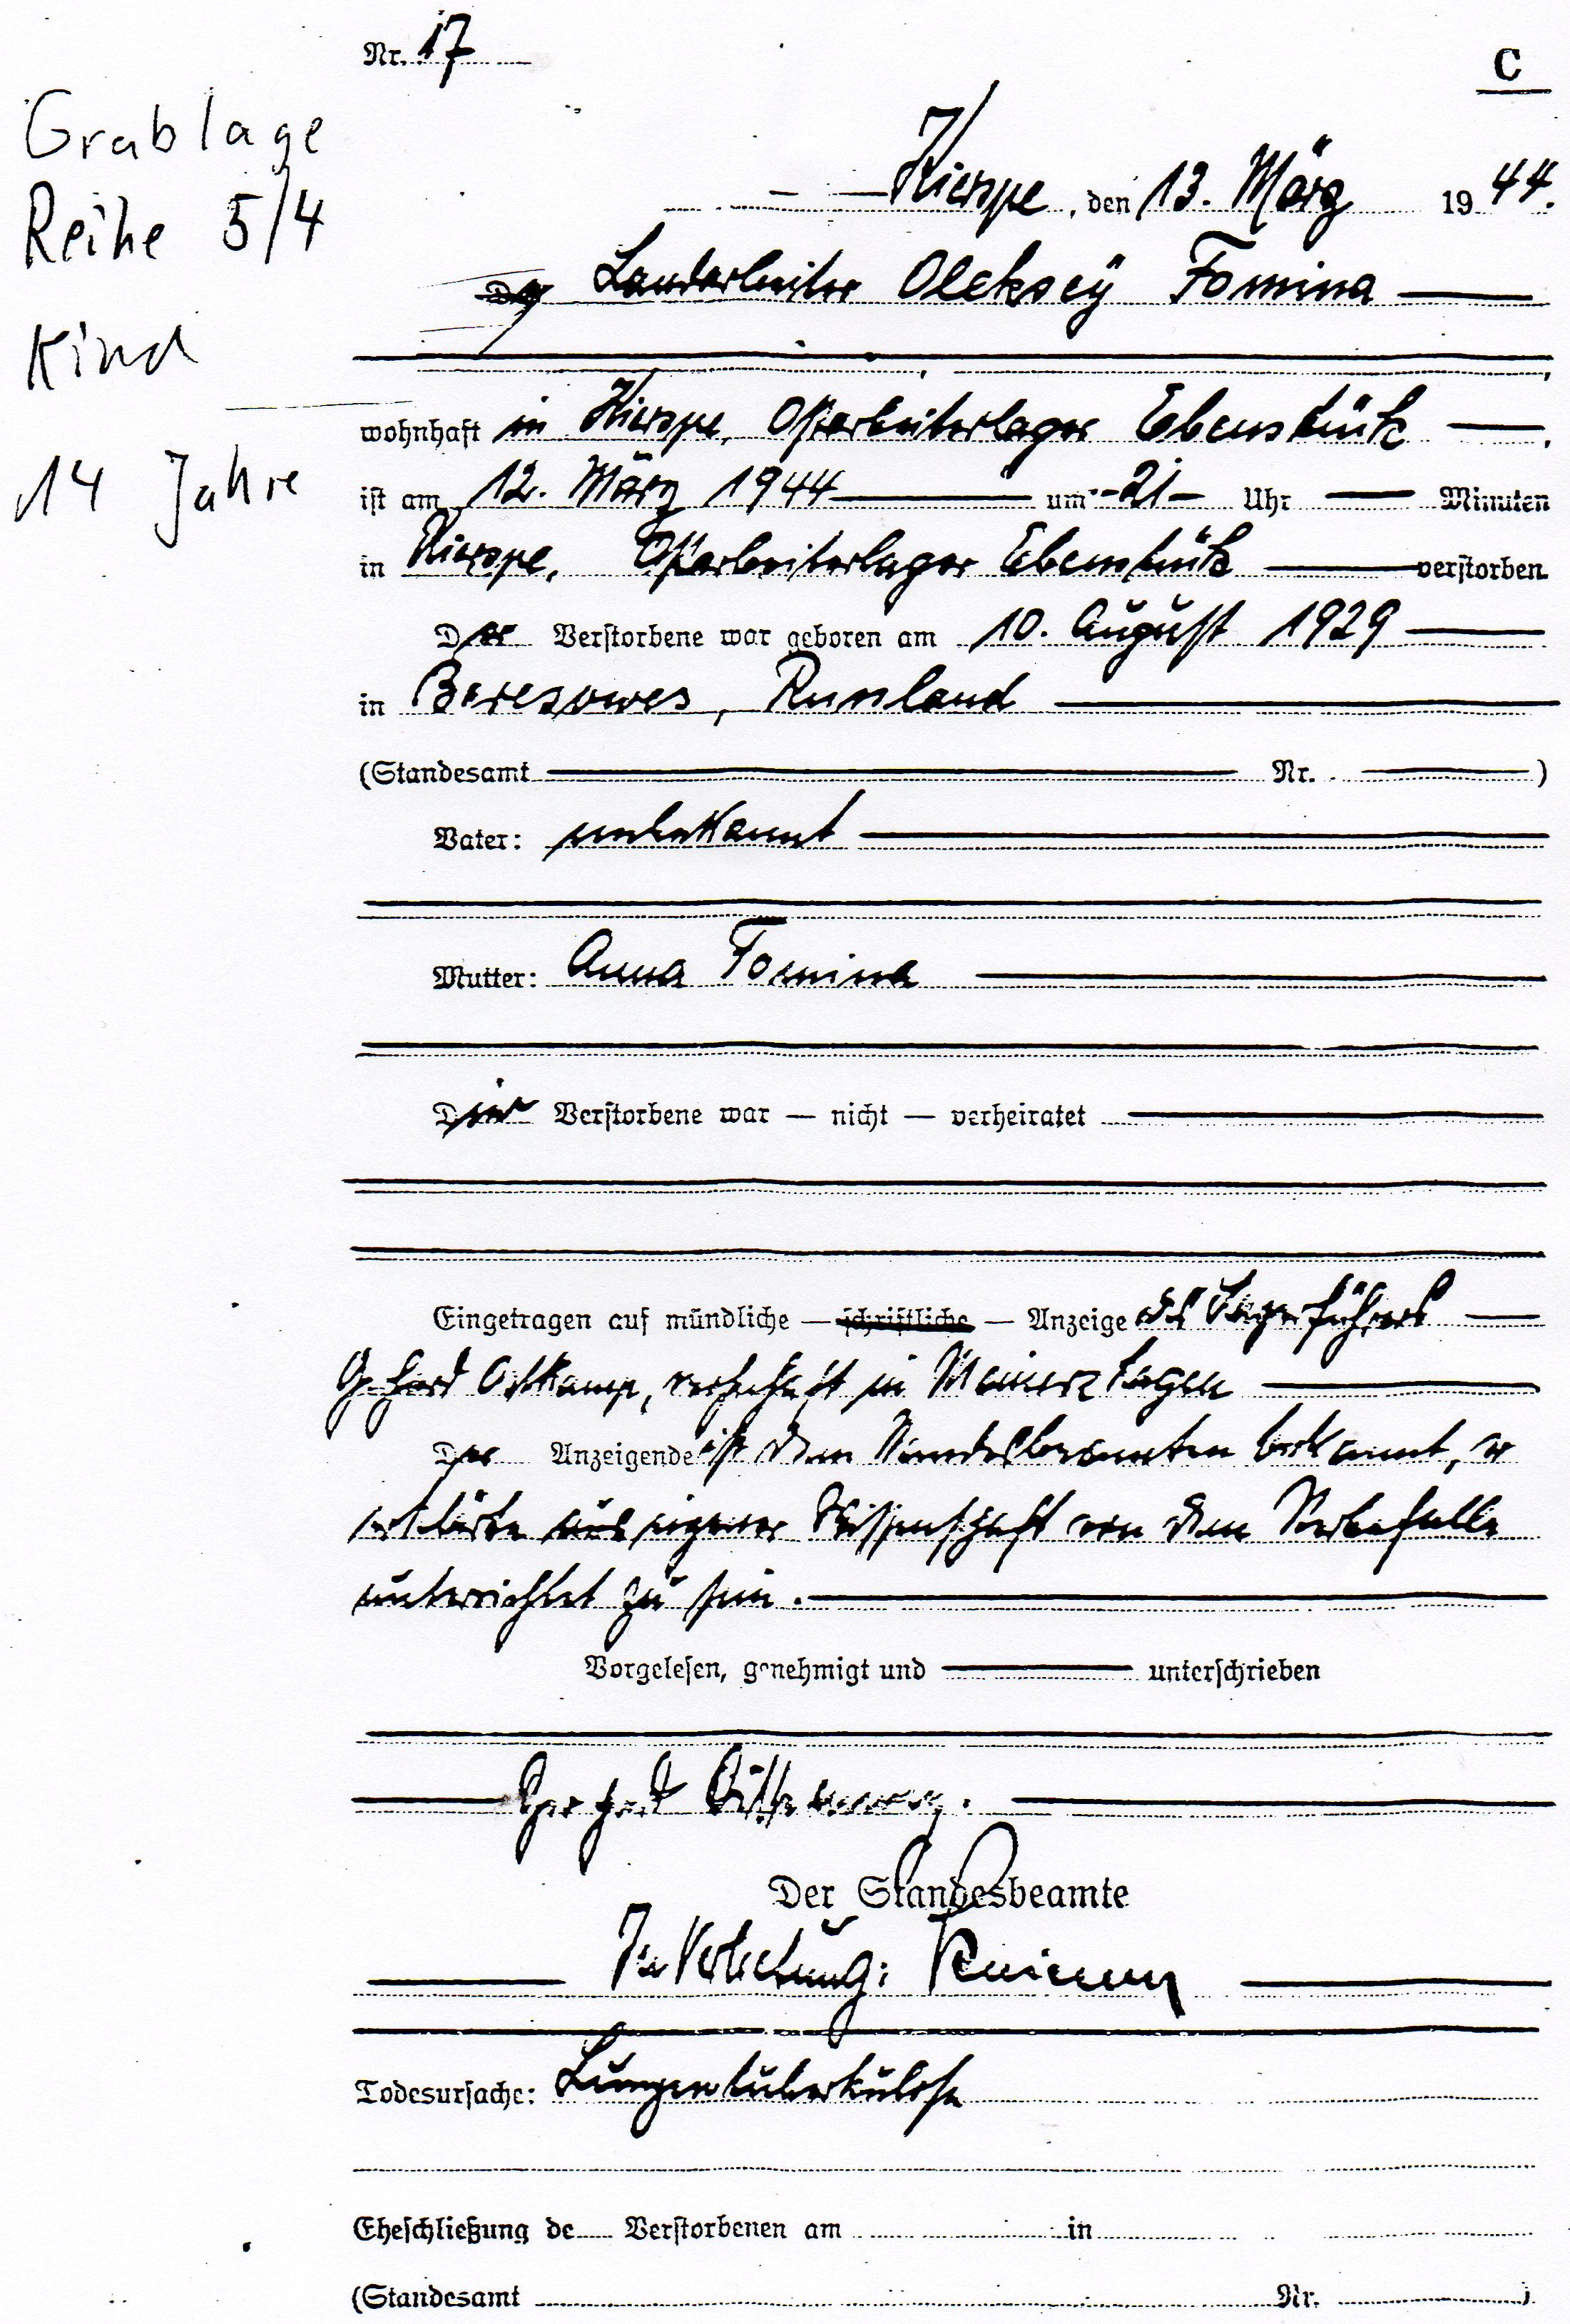 Nr. 17
C
Grablage
Reihe 5/4
Kind
14 Jahre
Kierspe, den 13. März 1944.
Landarbeiter Oleksey Fomina
wohnhaft in Kierspe, Ostarbeiterlager Ebenstück
ist am 12. März 1944 um 21 Uhr Minuten
in Kierspe, Ostarbeiterlager Ebenstück verstorben
Der Verstorbene war geboren am 10. August 1929
in Beresowes, Russland
(Standesamt Nr. )
Vater: unbekannt
Mutter: Anna Fomina
D Verstorbene war — nicht — verheiratet
Eingetragen auf mündliche — schriftliche — Anzeige des Lagerführers
Gerhard Ostkamp, wohnhaft in Meinerzhagen
Der Anzeigende ist dem Standesbeamten bekannt, er
erklärte aus eigener Wissenschaft von dem Sterbefalle
unterrichtet zu sein.
Vorgelesen, genehmigt und unterschrieben
Gerhard
Der Standesbeamte
In Vertretung:
Todesursache: Lungentuberkulose
Eheschließung de Verstorbenen am in
(Standesamt Nr. )